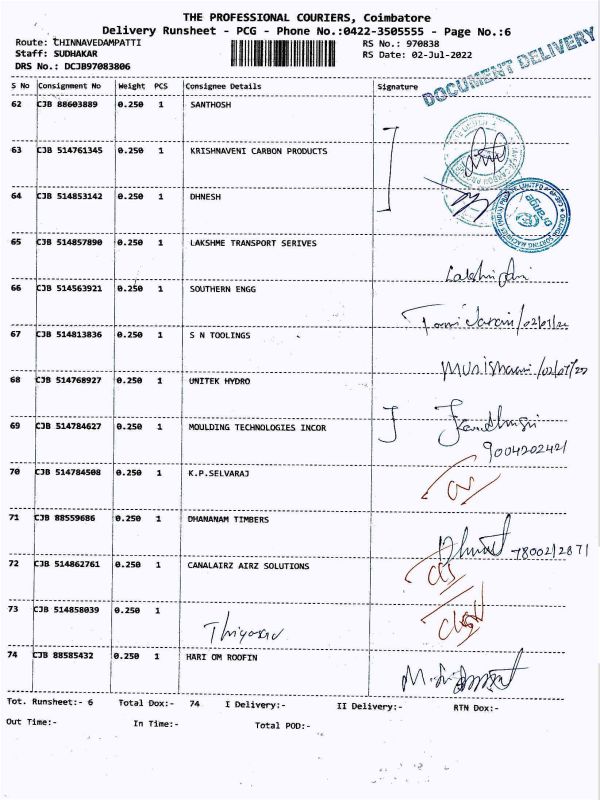 THE PROFESSIONAL COURIERS, Coimbatore
Delivery Runsheet - PCG - Phone No.:0422-3505555 - Page No.:6
Route: CHINNAVEDAMPATTI RS No.: 970838
Staff: SUDHAKAR RS Date: 02-Jul-2022
DRS No.: DCJB97083806
DOCUMENT DELIVERY
S No Consignment No Weight PCS Consignee Details Signature
62 CJB 88603889 0.250 1 SANTHOSH
63 CJB 514761345 0.250 1 KRISHNAVENI CARBON PRODUCTS
64 CJB 514853142 0.250 1 DHNESH
65 CJB 514857890 0.250 1 LAKSHME TRANSPORT SERIVES
66 CJB 514563921 0.250 1 SOUTHERN ENGG
67 CJB 514813836 0.250 1 S N TOOLINGS
68 CJB 514768927 0.250 1 UNITEK HYDRO
69 CJB 514784627 0.250 1 MOULDING TECHNOLOGIES INCOR
9004202421
70 CJB 514784508 0.250 1 K.P.SELVARAJ
71 CJB 88559686 0.250 1 DHANANAM TIMBERS
72 CJB 514862761 0.250 1 CANALAIRZ AIRZ SOLUTIONS
73 CJB 514858039 0.250 1
74 CJB 88585432 0.250 1 HARI OM ROOFIN
Tot. Runsheet:- 6 Total Dox:- 74 I Delivery:- II Delivery:- RTN Dox:-
Out Time:- In Time:- Total POD:-